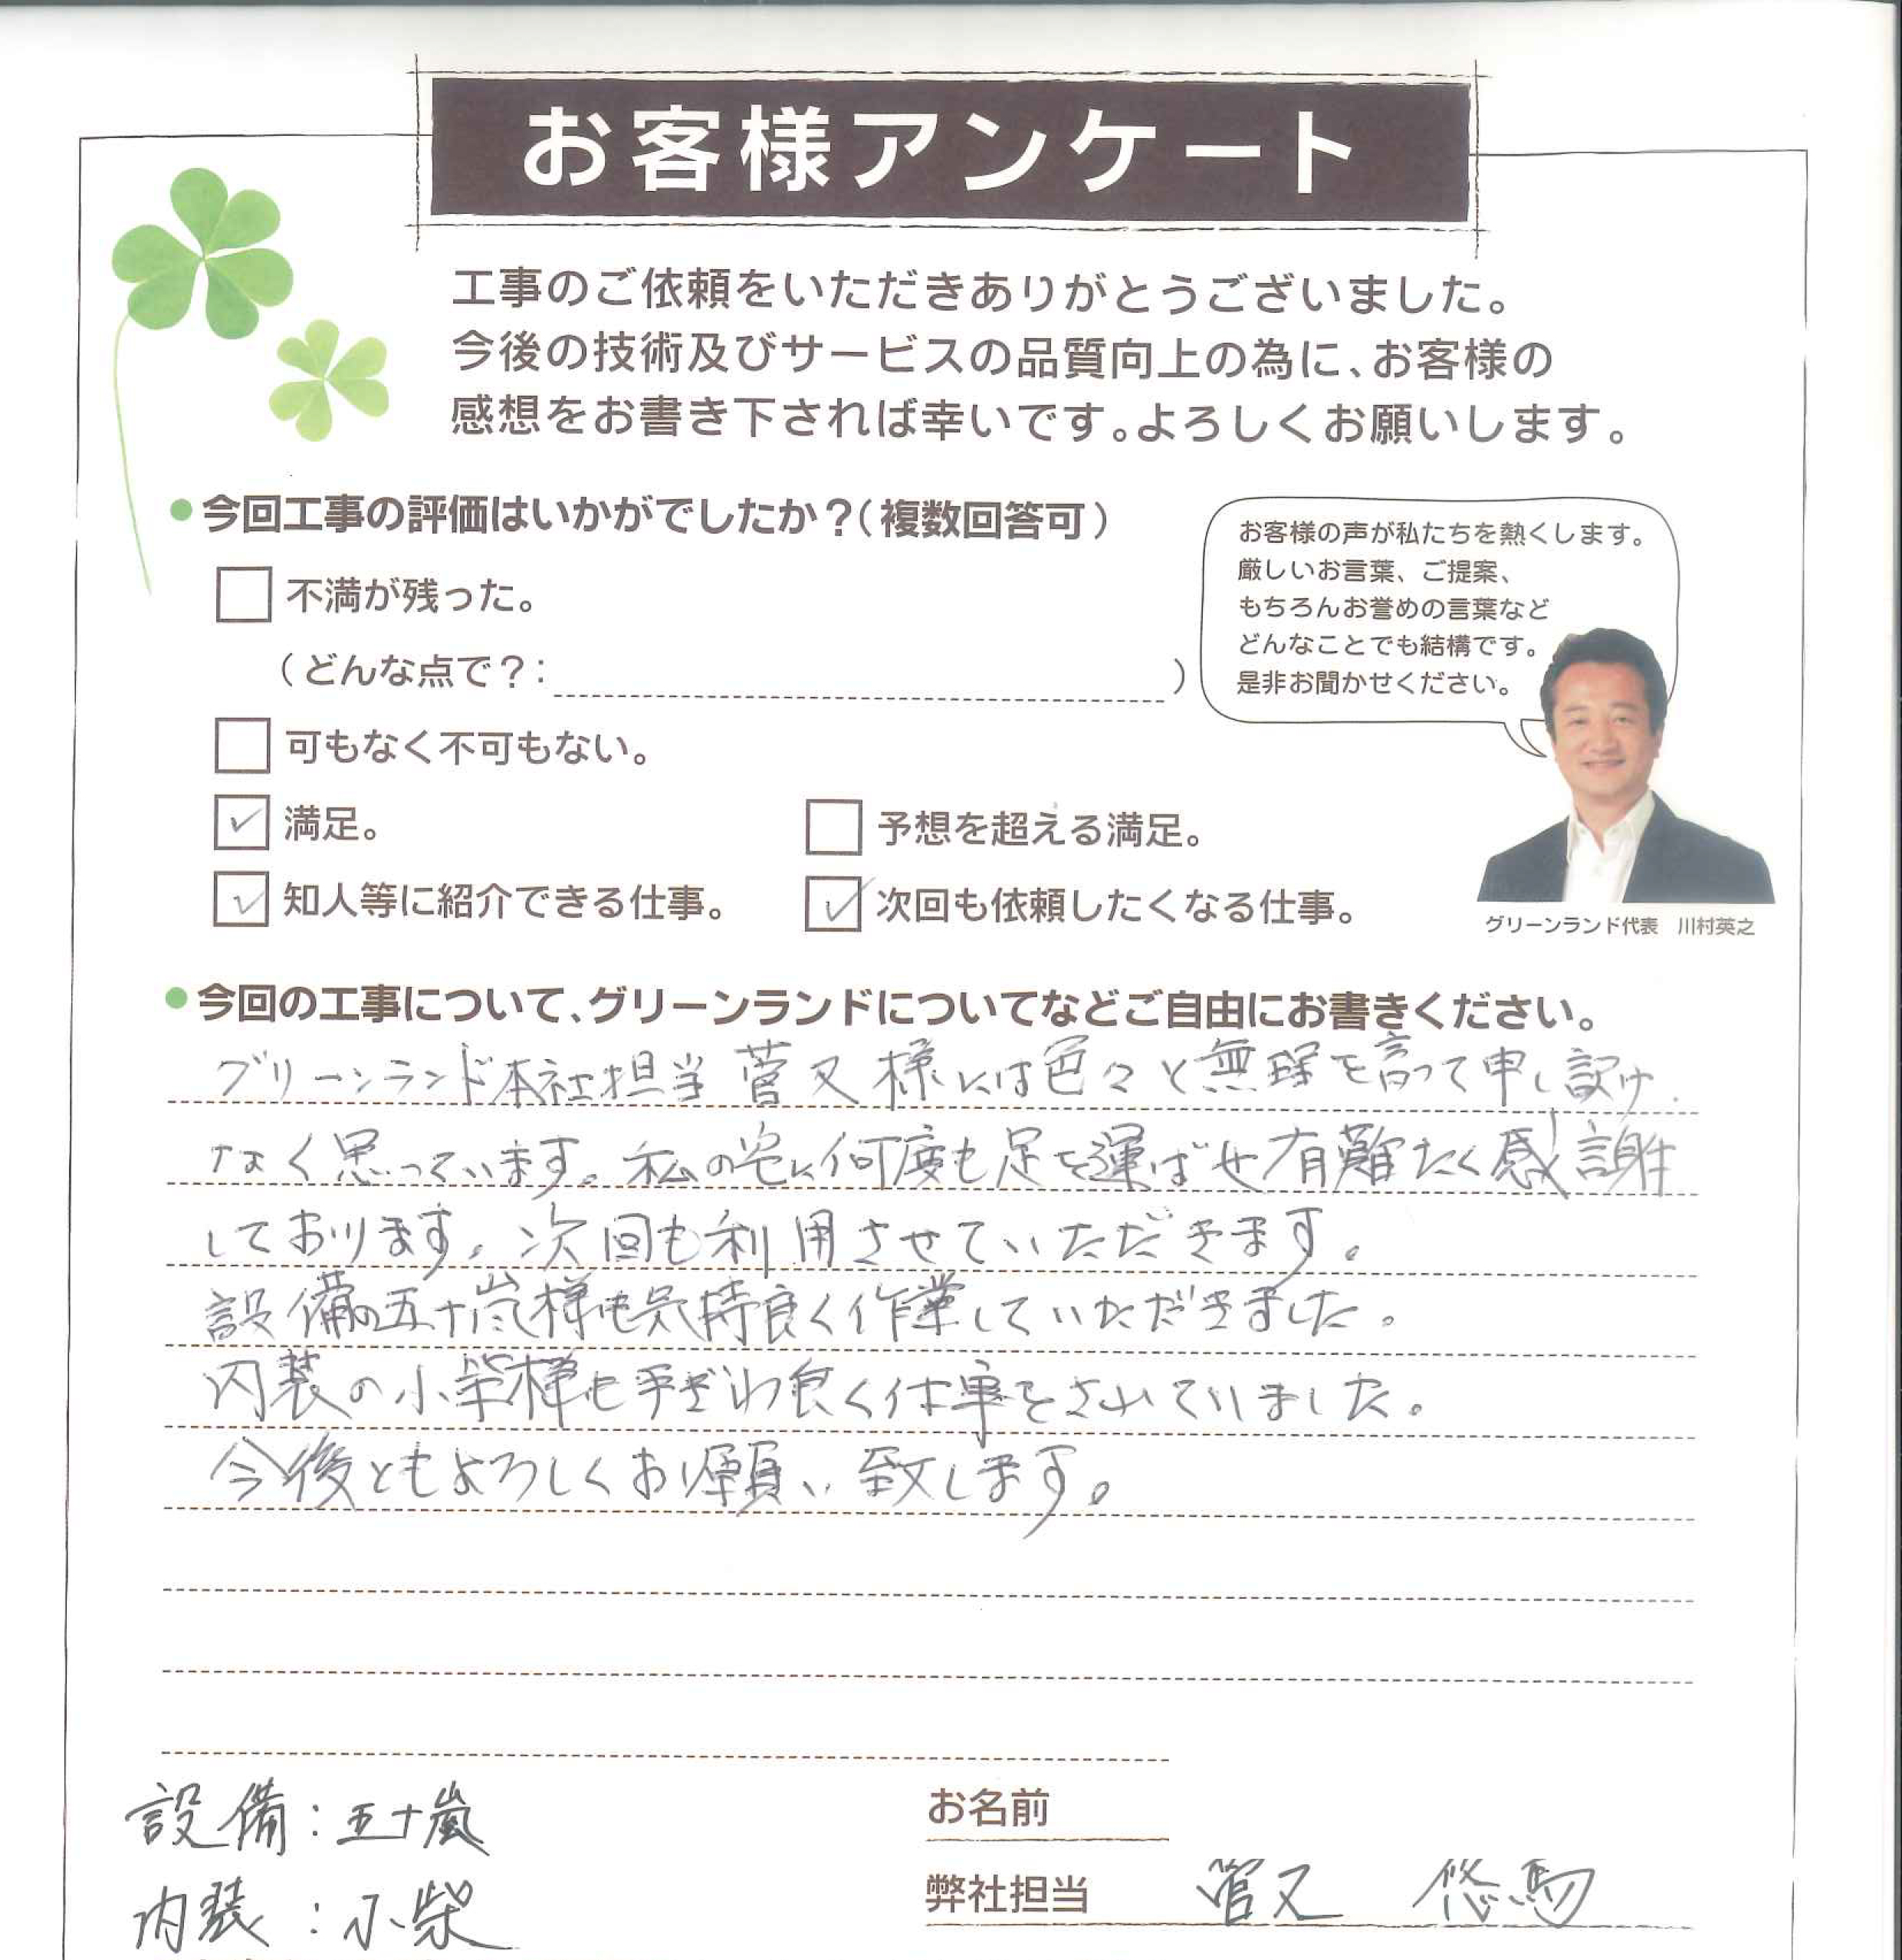 お客様アンケート
工事のご依頼をいただきありがとうございました。
今後の技術及びサービスの品質向上の為に、お客様の
感想をお書き下されば幸いです。よろしくお願いします。
今回工事の評価はいかがでしたか？（複数回答可）
不満が残った。
（どんな点で？：　）
可もなく不可もない。
満足。
予想を超える満足。
知人等に紹介できる仕事。
次回も依頼したくなる仕事。
お客様の声が私たちを熱くします。
厳しいお言葉、ご提案、
もちろんお誉めの言葉など
どんなことでも結構です。
是非お聞かせください。
グリーンランド代表　川村英之
今回の工事について、グリーンランドについてなどご自由にお書きください。
グリーンランド本社担当 菅又 様には色々と無理を言って申し訳け
なく思っています。私の為に何度も足を運ばせ有難たく感謝
しております。次回も利用させていただきます。
設備の五十嵐様も気持良く作業していただきました。
内装の小柴様も手ぎわ良く仕事をされていました。
今後ともよろしくお願い致します。
設備：五十嵐
内装：小柴
お名前
弊社担当 菅又 悠馬